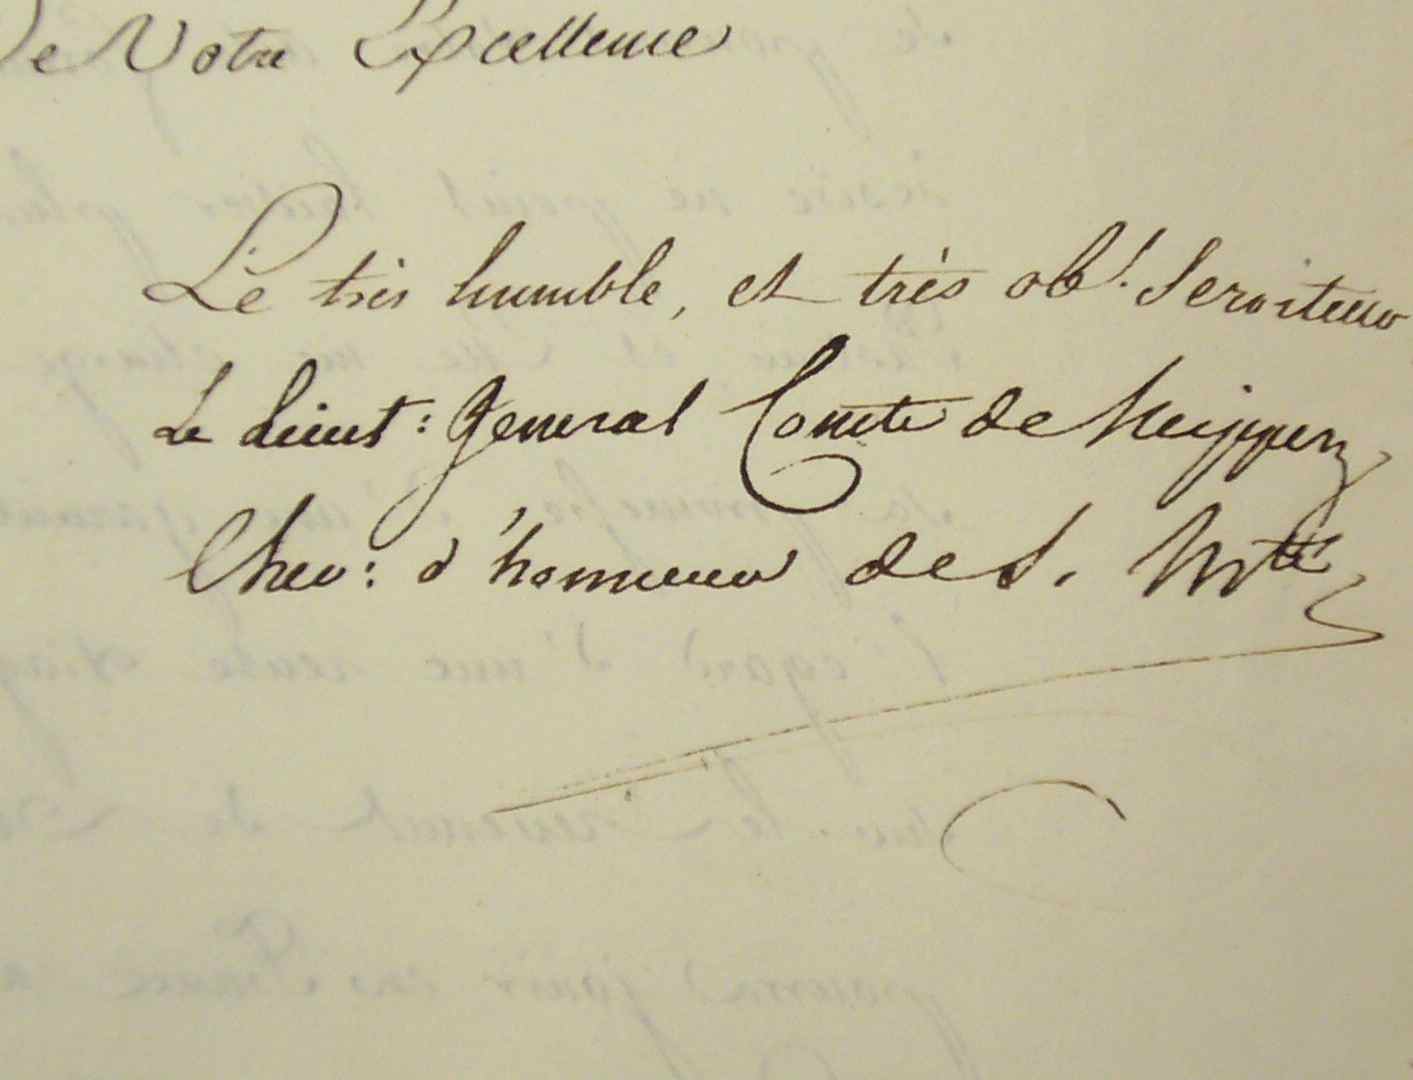 De Votre Excellence
Le très humble, et très obt. Serviteur
Le Lieut: General Comte de Neipperg
Chev: d'honneur de S. Mté